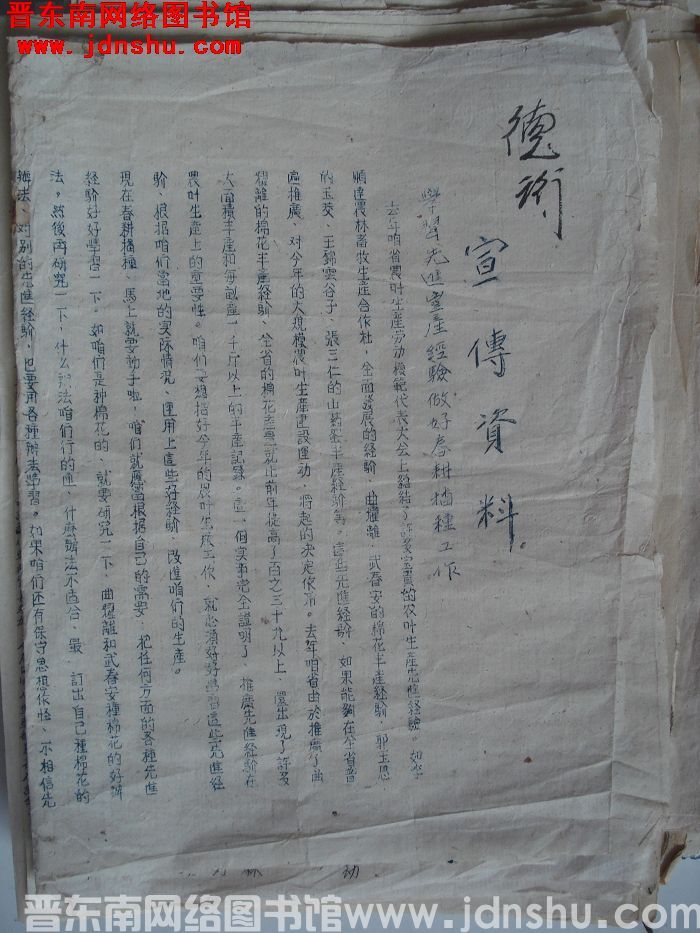 晋东南网络图书馆
www.jdnshu.com
宣傳資料
學習先進生產經驗做好春耕播種工作
去年咱省農叶生產労动模範代表大会上総結了許多宝貴的农叶生產先進經驗。如李
順達農林畜牧生產合作社，全面發展的經驗，曲耀離、武春安的棉花丰產經驗，郭玉恩
的玉茭、王錦雲谷子、張三仁的山葯蛋丰產經驗等。這些先進經驗，如果能夠在全省普
遍推廣，对今年的大規模農叶生產建設運动，將起的决定作用。去年咱省由於推廣了曲
耀離的棉花丰產經驗、全省的棉花產量就比前年提高了百之三十九以上，還出現了許多
大面積丰產和每畝產一千斤以上的丰產記録。這一個事实完全證明了，推廣先進經驗在
農叶生產上的重要性。咱们要想搞好今年的农叶生產工作，就必須好好學習這些先進經
驗、根据咱们當地的实际情况、運用上這些好經驗、改進咱们的生產。
現在春耕播種、馬上就要动手啦，咱们就應當根据自己的需要，把任何方面的各種先進
經驗好好學習一下。如咱们是种棉花的、就要研究一下、曲耀離和武春安種棉花的好辦
法。然後再研究一下，什么辦法咱们行的通，什麽辦法不适合、最 訂出自己種棉花的
辦法、对别的先進經驗，也要用各種辦法學習。如果咱们还有保守思想作怪、不相信先
晋东南网络图书馆www.jdnshu.com